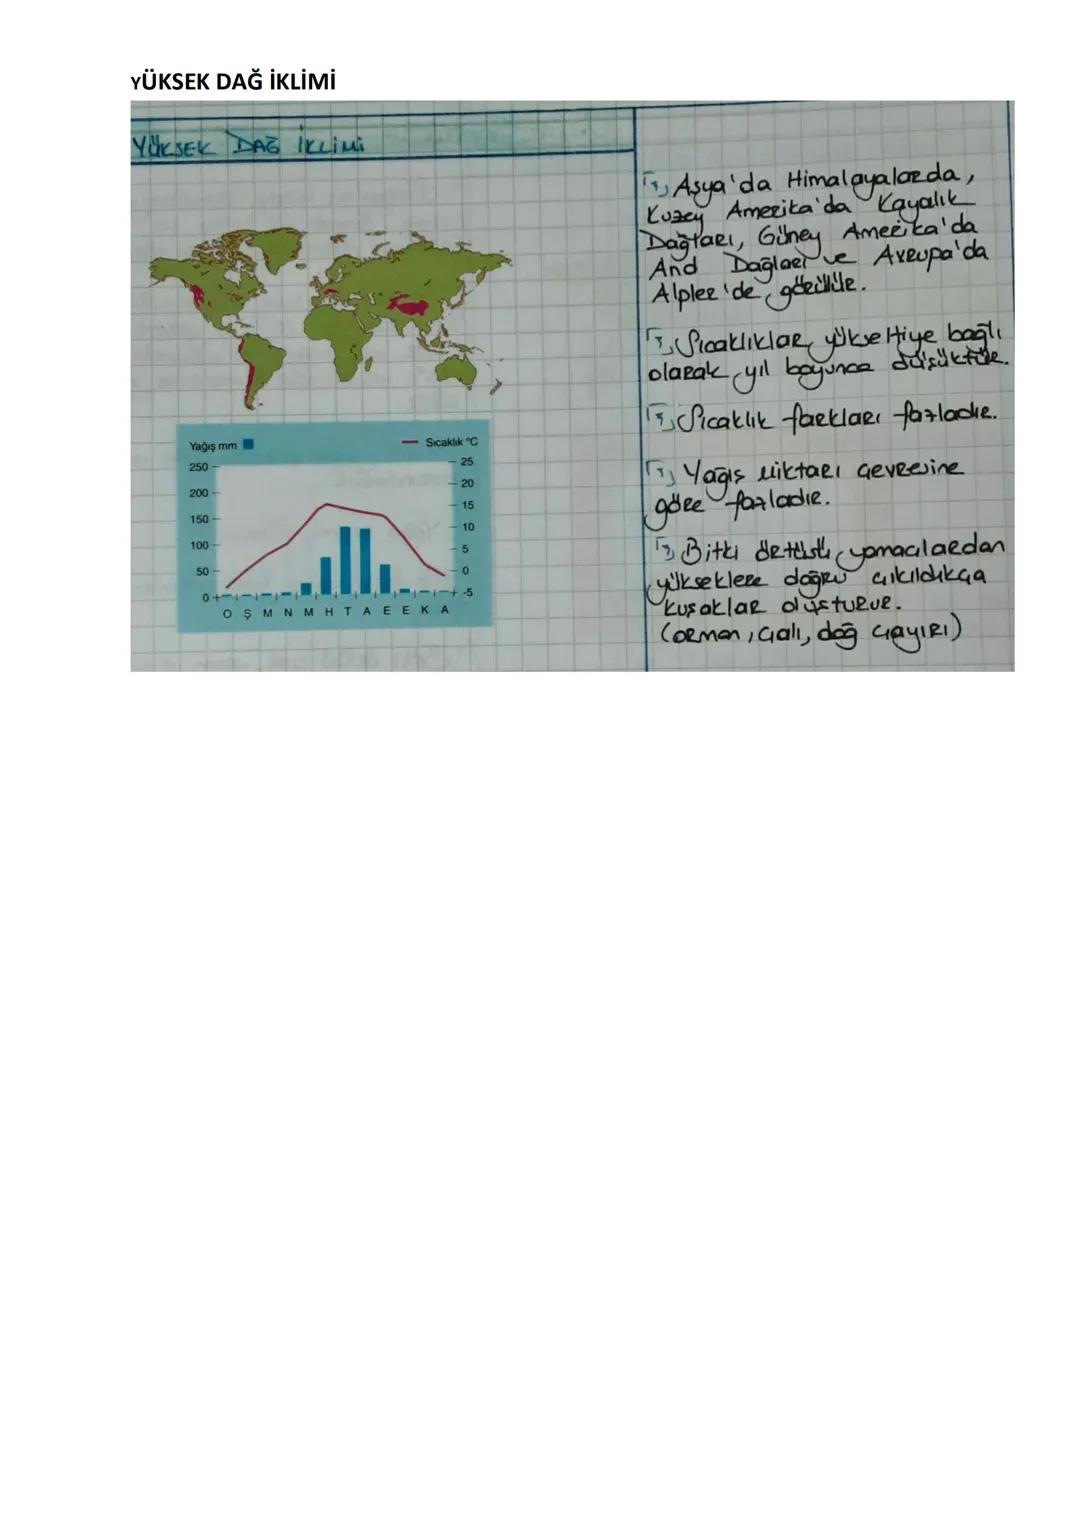 YÜKSEK DAĞ İKLİMİ
YÜKSEK DAĞ İKLİMİ
Asya'da Himalayalarda,
Kuzey Amerika'da Kayalık
Dağları, Güney Amerika'da
And Dağları ve Avrupa'da
Alpler'de görülür.
Sıcaklıklar yükseltiye bağlı
olarak yıl boyunca düşüktür.
Sıcaklık farkları fazladır.
Yağış miktarı çevresine
göre fazladır.
Bitki örtüsü, yamaçlardan
yükseklere doğru çıkıldıkça
kuşaklar oluşturur.
(orman, çalı, dağ çayırı)
Yağış mm
Sıcaklık °C
250
25
200
20
150
15
100
10
50
5
0
0
-5
O Ş M N M H T A E E K A